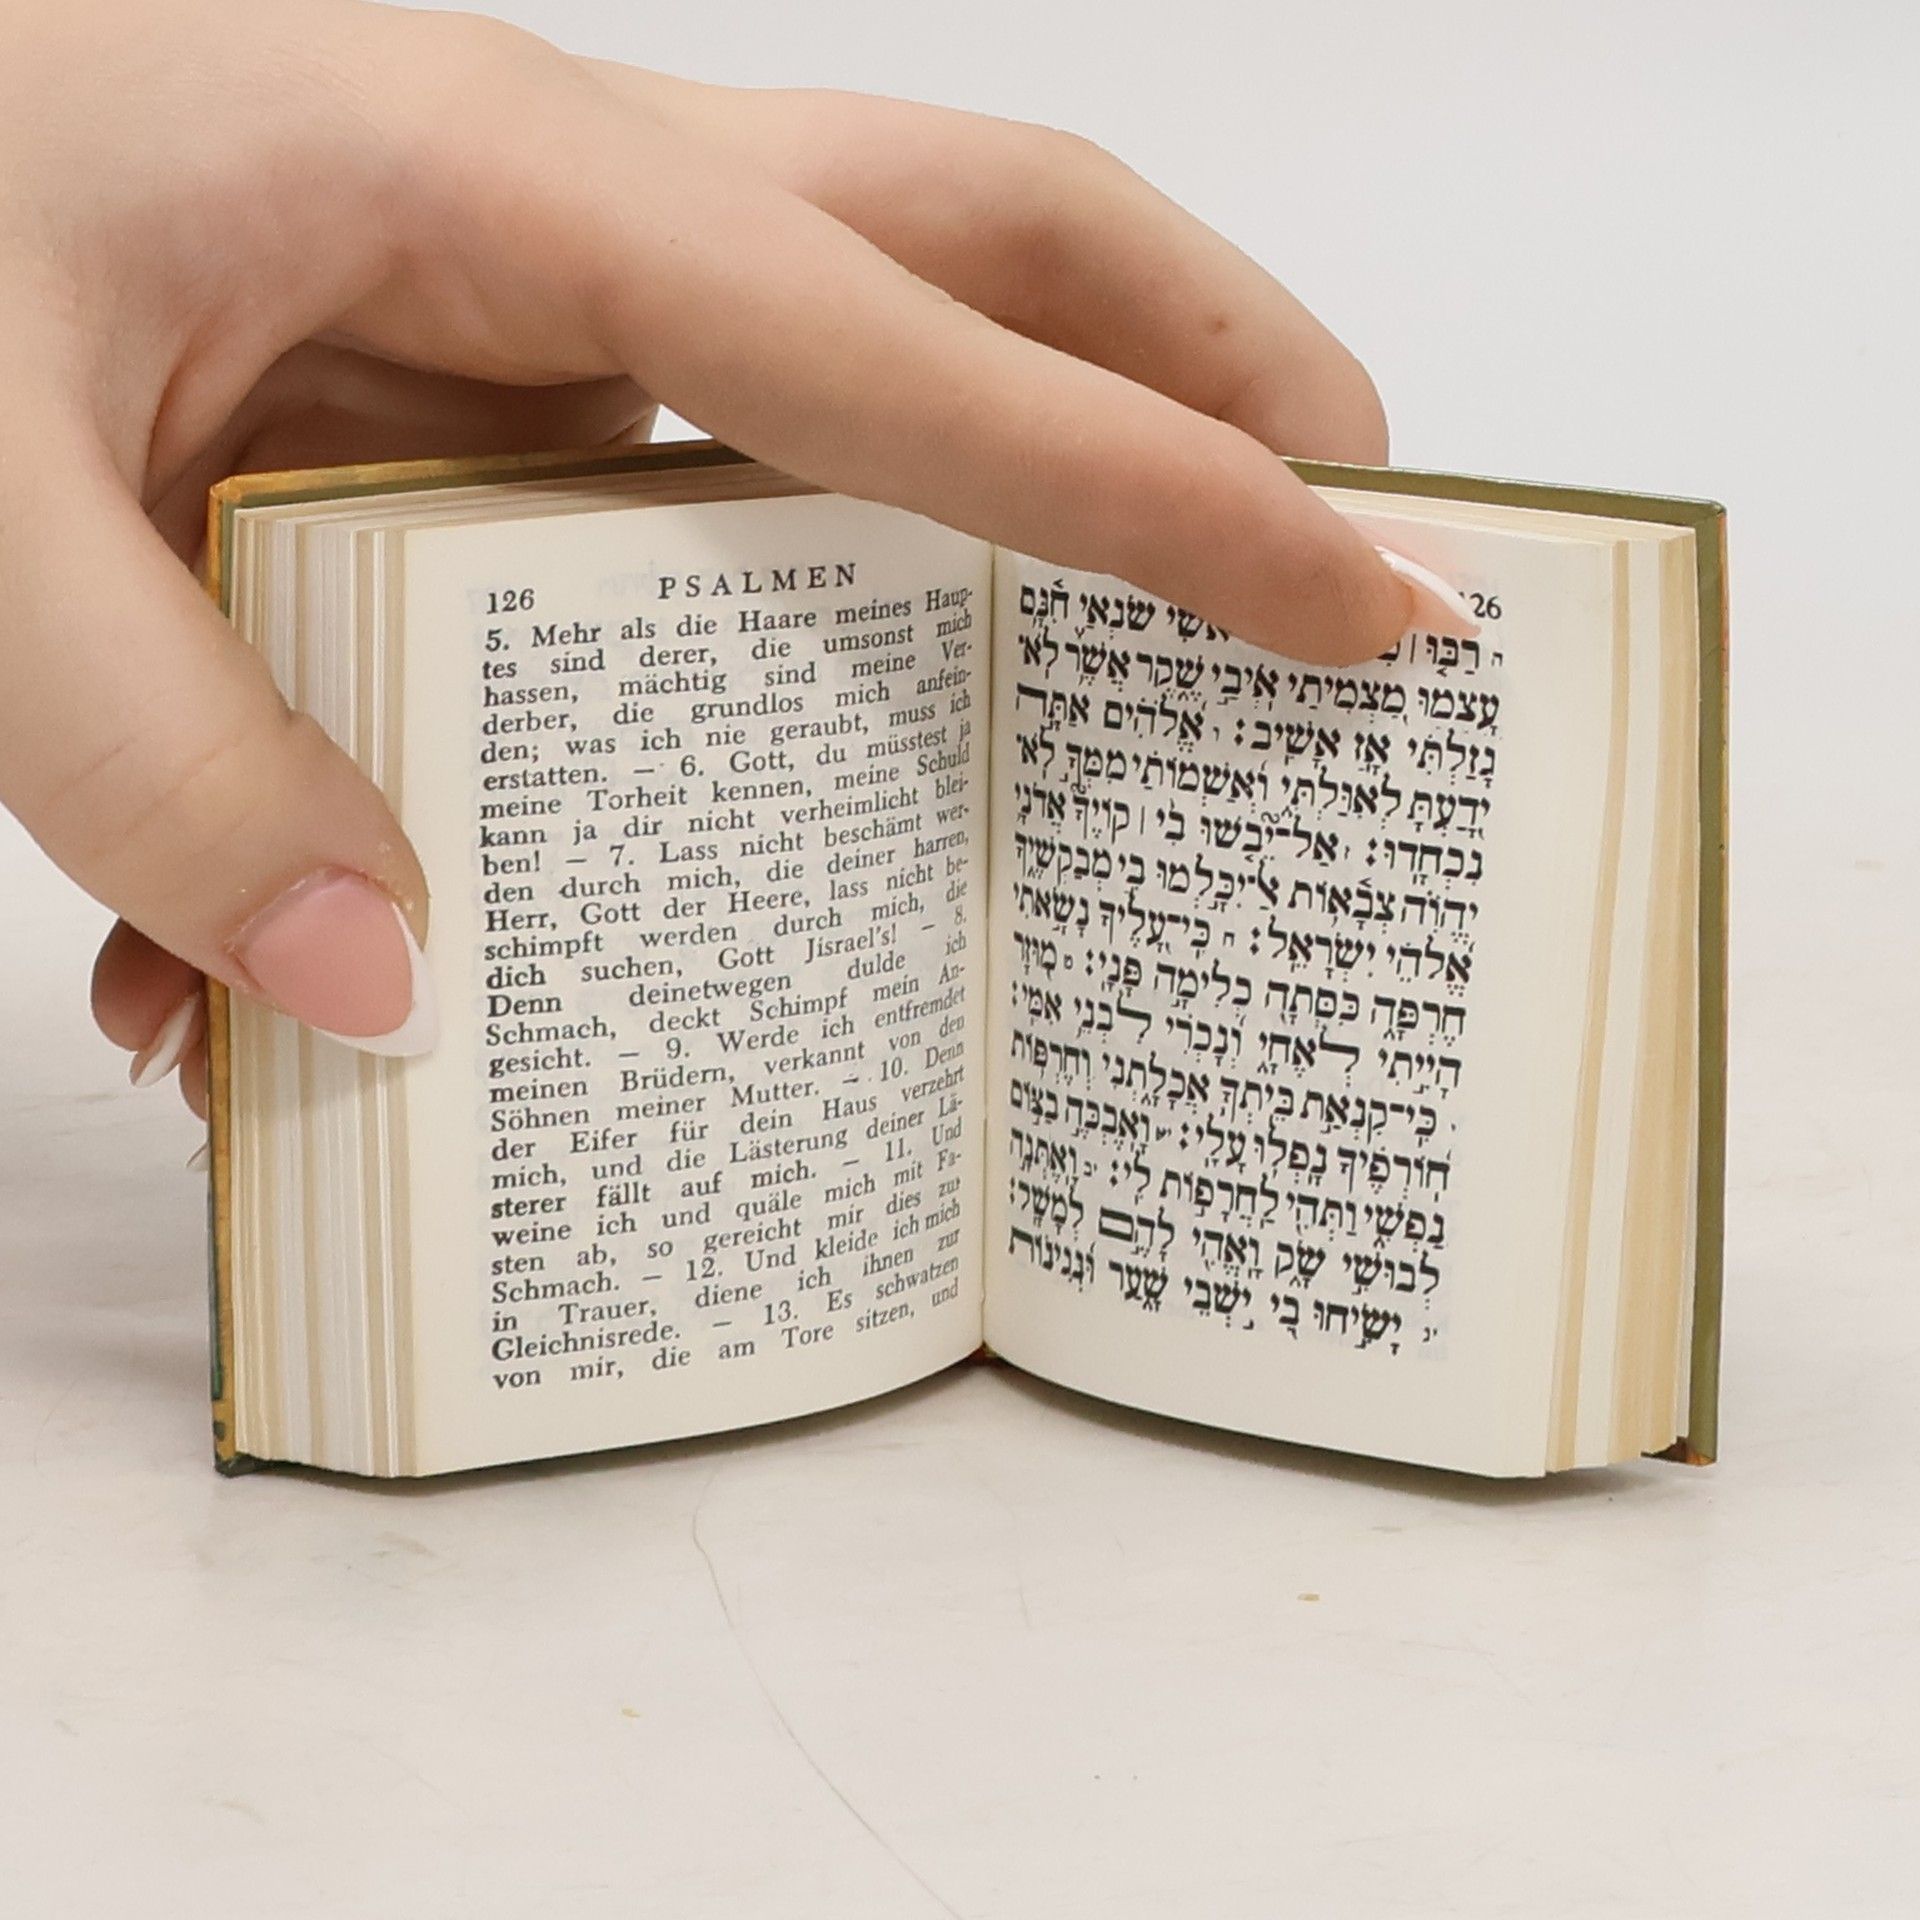 126 PSALMEN
5. Mehr als die Haare meines Haup-
tes sind derer, die umsonst mich
hassen, mächtig sind meine Ver-
derber, die grundlos mich anfein-
den; was ich nie geraubt, muss ich
erstatten. — 6. Gott, du müsstest ja
meine Torheit kennen, meine Schuld
kann ja dir nicht verheimlicht blei-
ben! — 7. Lass nicht beschämt wer-
den durch mich, die deiner harren,
Herr, Gott der Heere, lass nicht be-
schimpft werden durch mich, die
dich suchen, Gott Jisrael's! — 8.
Denn deinetwegen dulde ich
Schmach, deckt Schimpf mein An-
gesicht. — 9. Werde ich entfremdet
meinen Brüdern, verkannt von den
Söhnen meiner Mutter. — 10. Denn
der Eifer für dein Haus verzehrt
mich, und die Lästerung deiner Lä-
sterer fällt auf mich. — 11. Und
weine ich und quäle mich mit Fa-
sten ab, so gereicht mir dies zur
Schmach. — 12. Und kleide ich mich
in Trauer, diene ich ihnen zur
Gleichnisrede. — 13. Es schwatzen
von mir, die am Tore sitzen, und
126
ה רַבּוּ | שֹׂנְאַי חִנָּם
עָצְמוּ מַצְמִיתַי אֹיְבַי שֶׁקֶר אֲשֶׁר לֹא־
גָזַלְתִּי אָז אָשִׁיב׃ ו אֱלֹהִים אַתָּה
יָדַעְתָּ לְאִוַּלְתִּי וְאַשְׁמוֹתַי מִמְּךָ לֹא־
נִכְחָדוּ׃ ז אַל־יֵבֹשׁוּ בִי | קֹוֶיךָ אֲדֹנָי
יֱהוִֹה צְבָאוֹת אַל־יִכָּלְמוּ בִי מְבַקְשֶׁיךָ
אֱלֹהֵי יִשְׂרָאֵל׃ ח כִּי־עָלֶיךָ נָשָׂאתִי
חֶרְפָּה כִּסְּתָה כְלִימָּה פָנָי׃ ט מוּזָר
הָיִיתִי לְאֶחָי וְנָכְרִי לִבְנֵי אִמִּי׃
י כִּי־קִנְאַת בֵּיתְךָ אֲכָלָתְנִי וְחֶרְפּוֹת
חוֹרְפֶיךָ נָפְלוּ עָלָי׃ יא וָאֶבְכֶּה בַצּוֹם
נַפְשִׁי וַתְּהִי לַחֲרָפוֹת לִי׃ יב וָאֶתְּנָה
לְבוּשִׁי שָׂק וָאֱהִי לָהֶם לְמָשָׁל׃
יג יָשִׂיחוּ בִי יֹשְׁבֵי שָׁעַר וּנְגִינוֹת